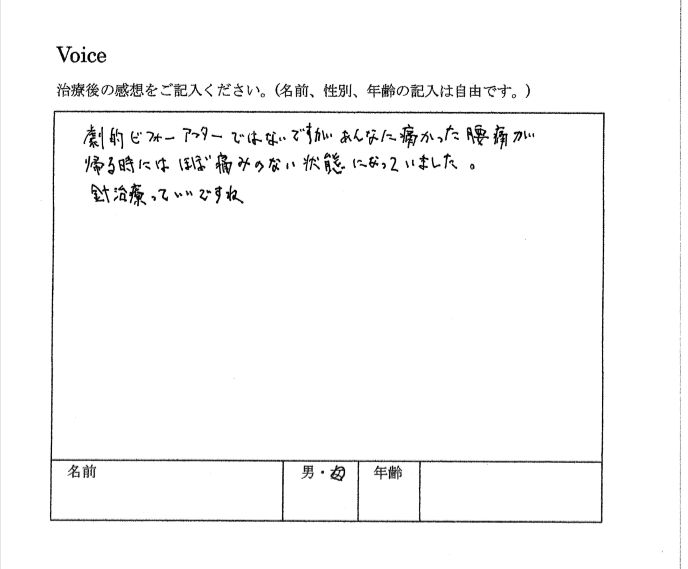 Voice
治療後の感想をご記入ください。(名前、性別、年齢の記入は自由です。)
劇的ビフォーアフターではないですがあんなに痛かった腰痛が
帰る時にはほぼ痛みのない状態になっていました。
針治療っていいですね
名前 男・女 年齢